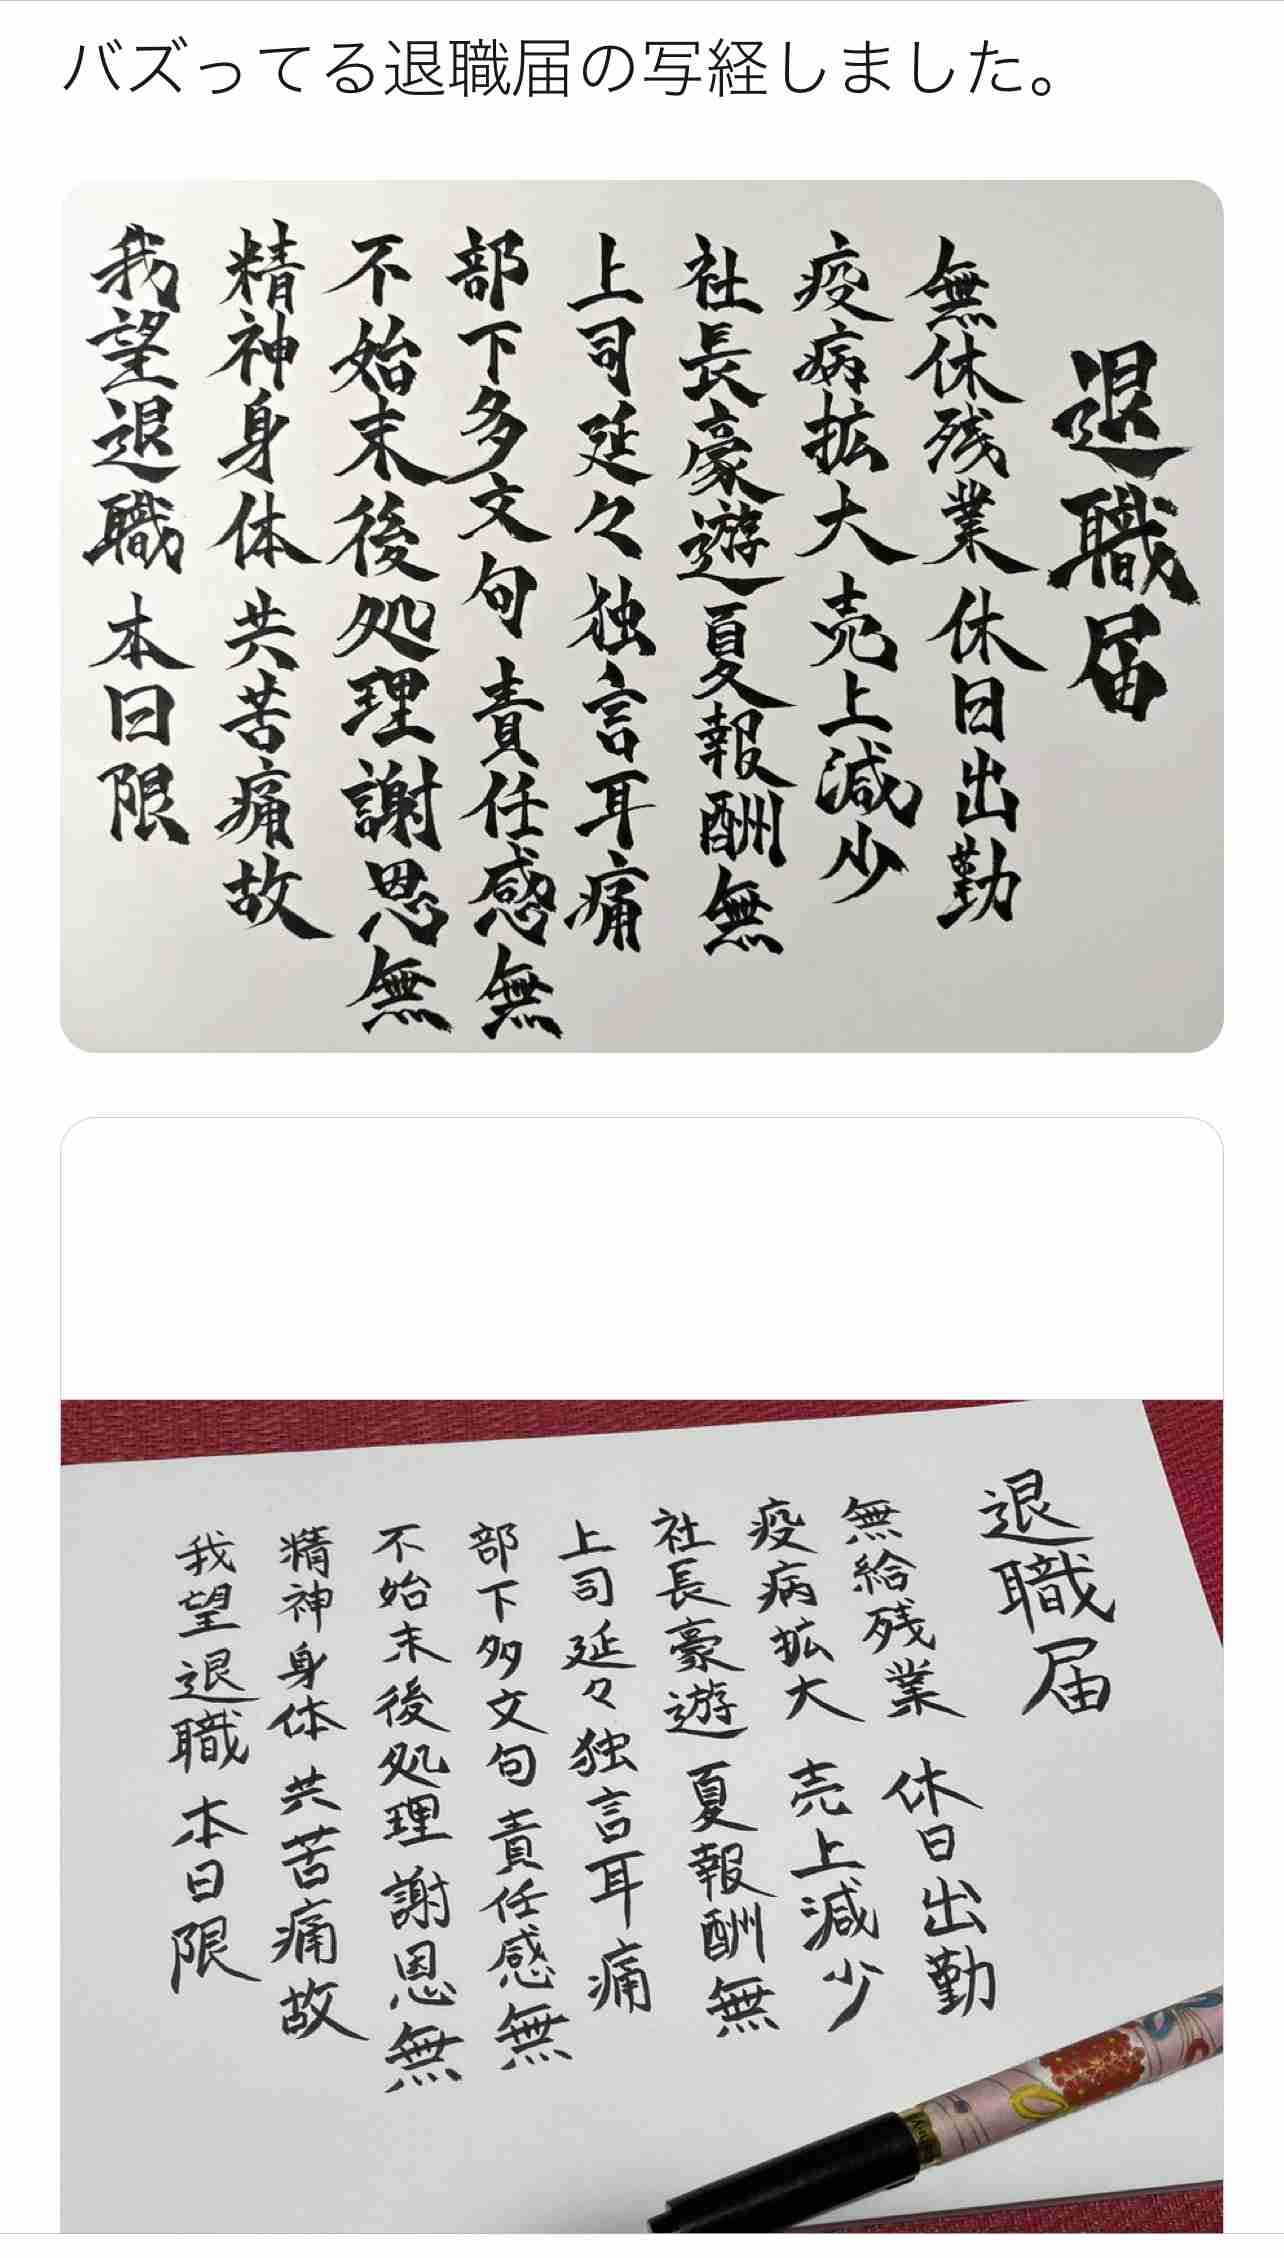 バズってる退職届の写経しました。
退職届
無休残業 休日出勤
疫病拡大 売上減少
社長豪遊 夏報酬無
上司延々 独言耳痛
部下多文句 責任感無
不始末後処理 謝恩無
精神身体 共苦痛故
我望退職 本日限
退職届
無給残業 休日出勤
疫病拡大 売上減少
社長豪遊 夏報酬無
上司延々 独言耳痛
部下多文句 責任感無
不始末後処理 謝恩無
精神身体 共苦痛故
我望退職 本日限